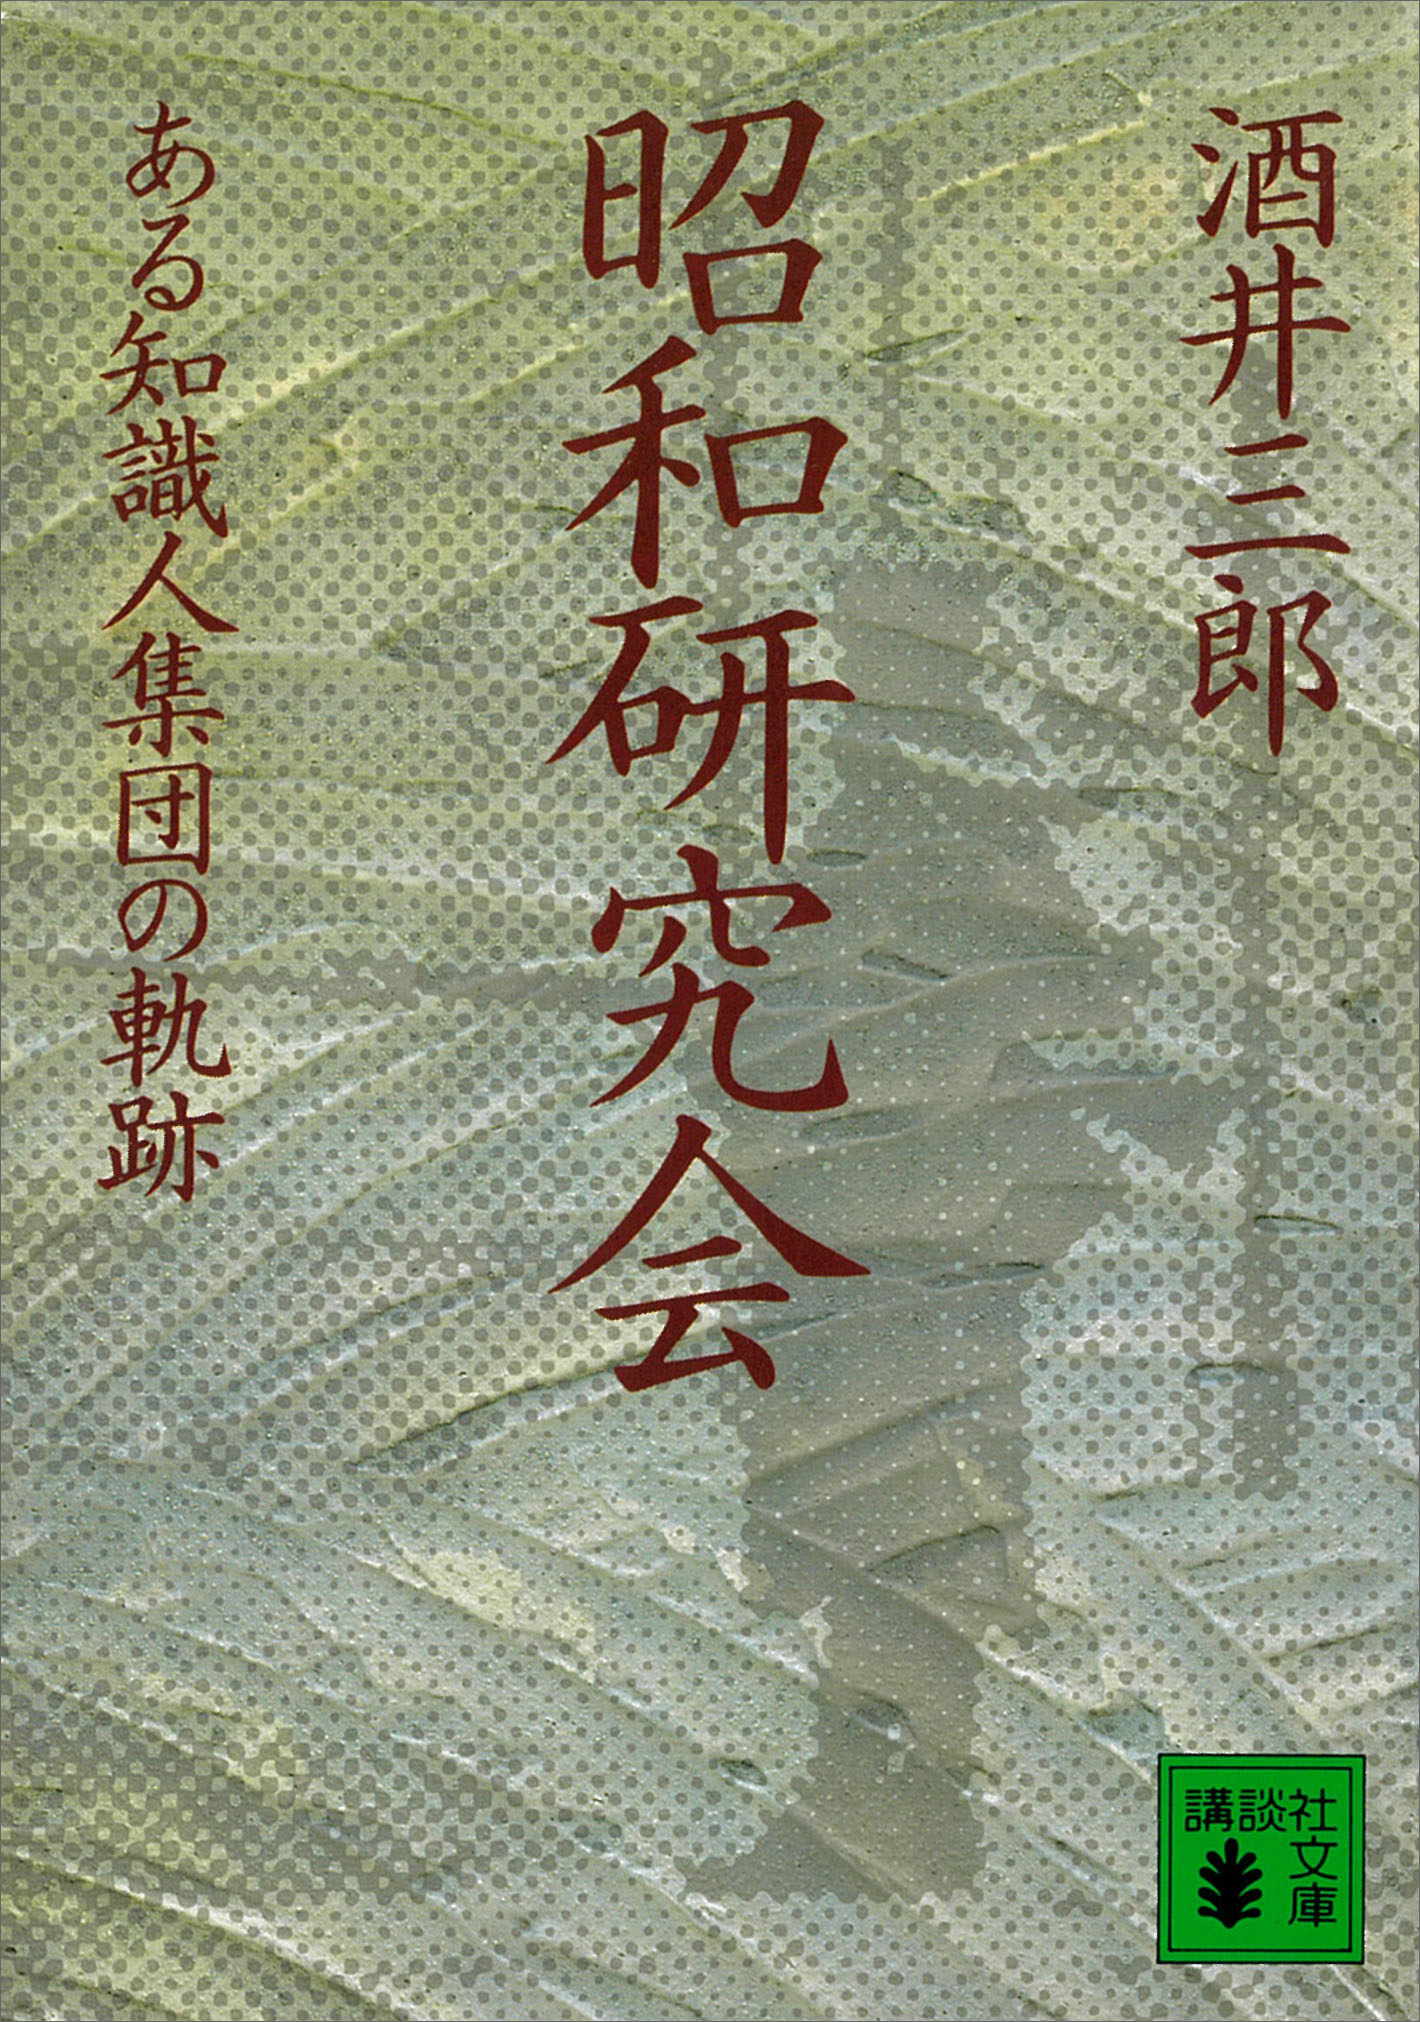 酒井三郎
昭和研究会
ある知識人集団の軌跡
講談社
文庫